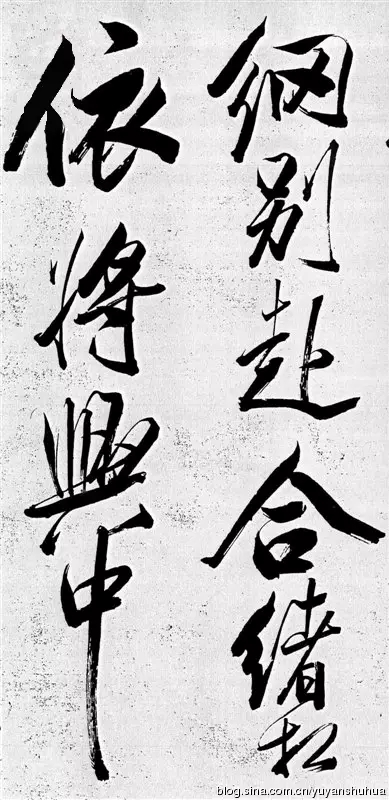 别赴合緒
依將興中
blog.sina.com.cn/yuyanshuhua